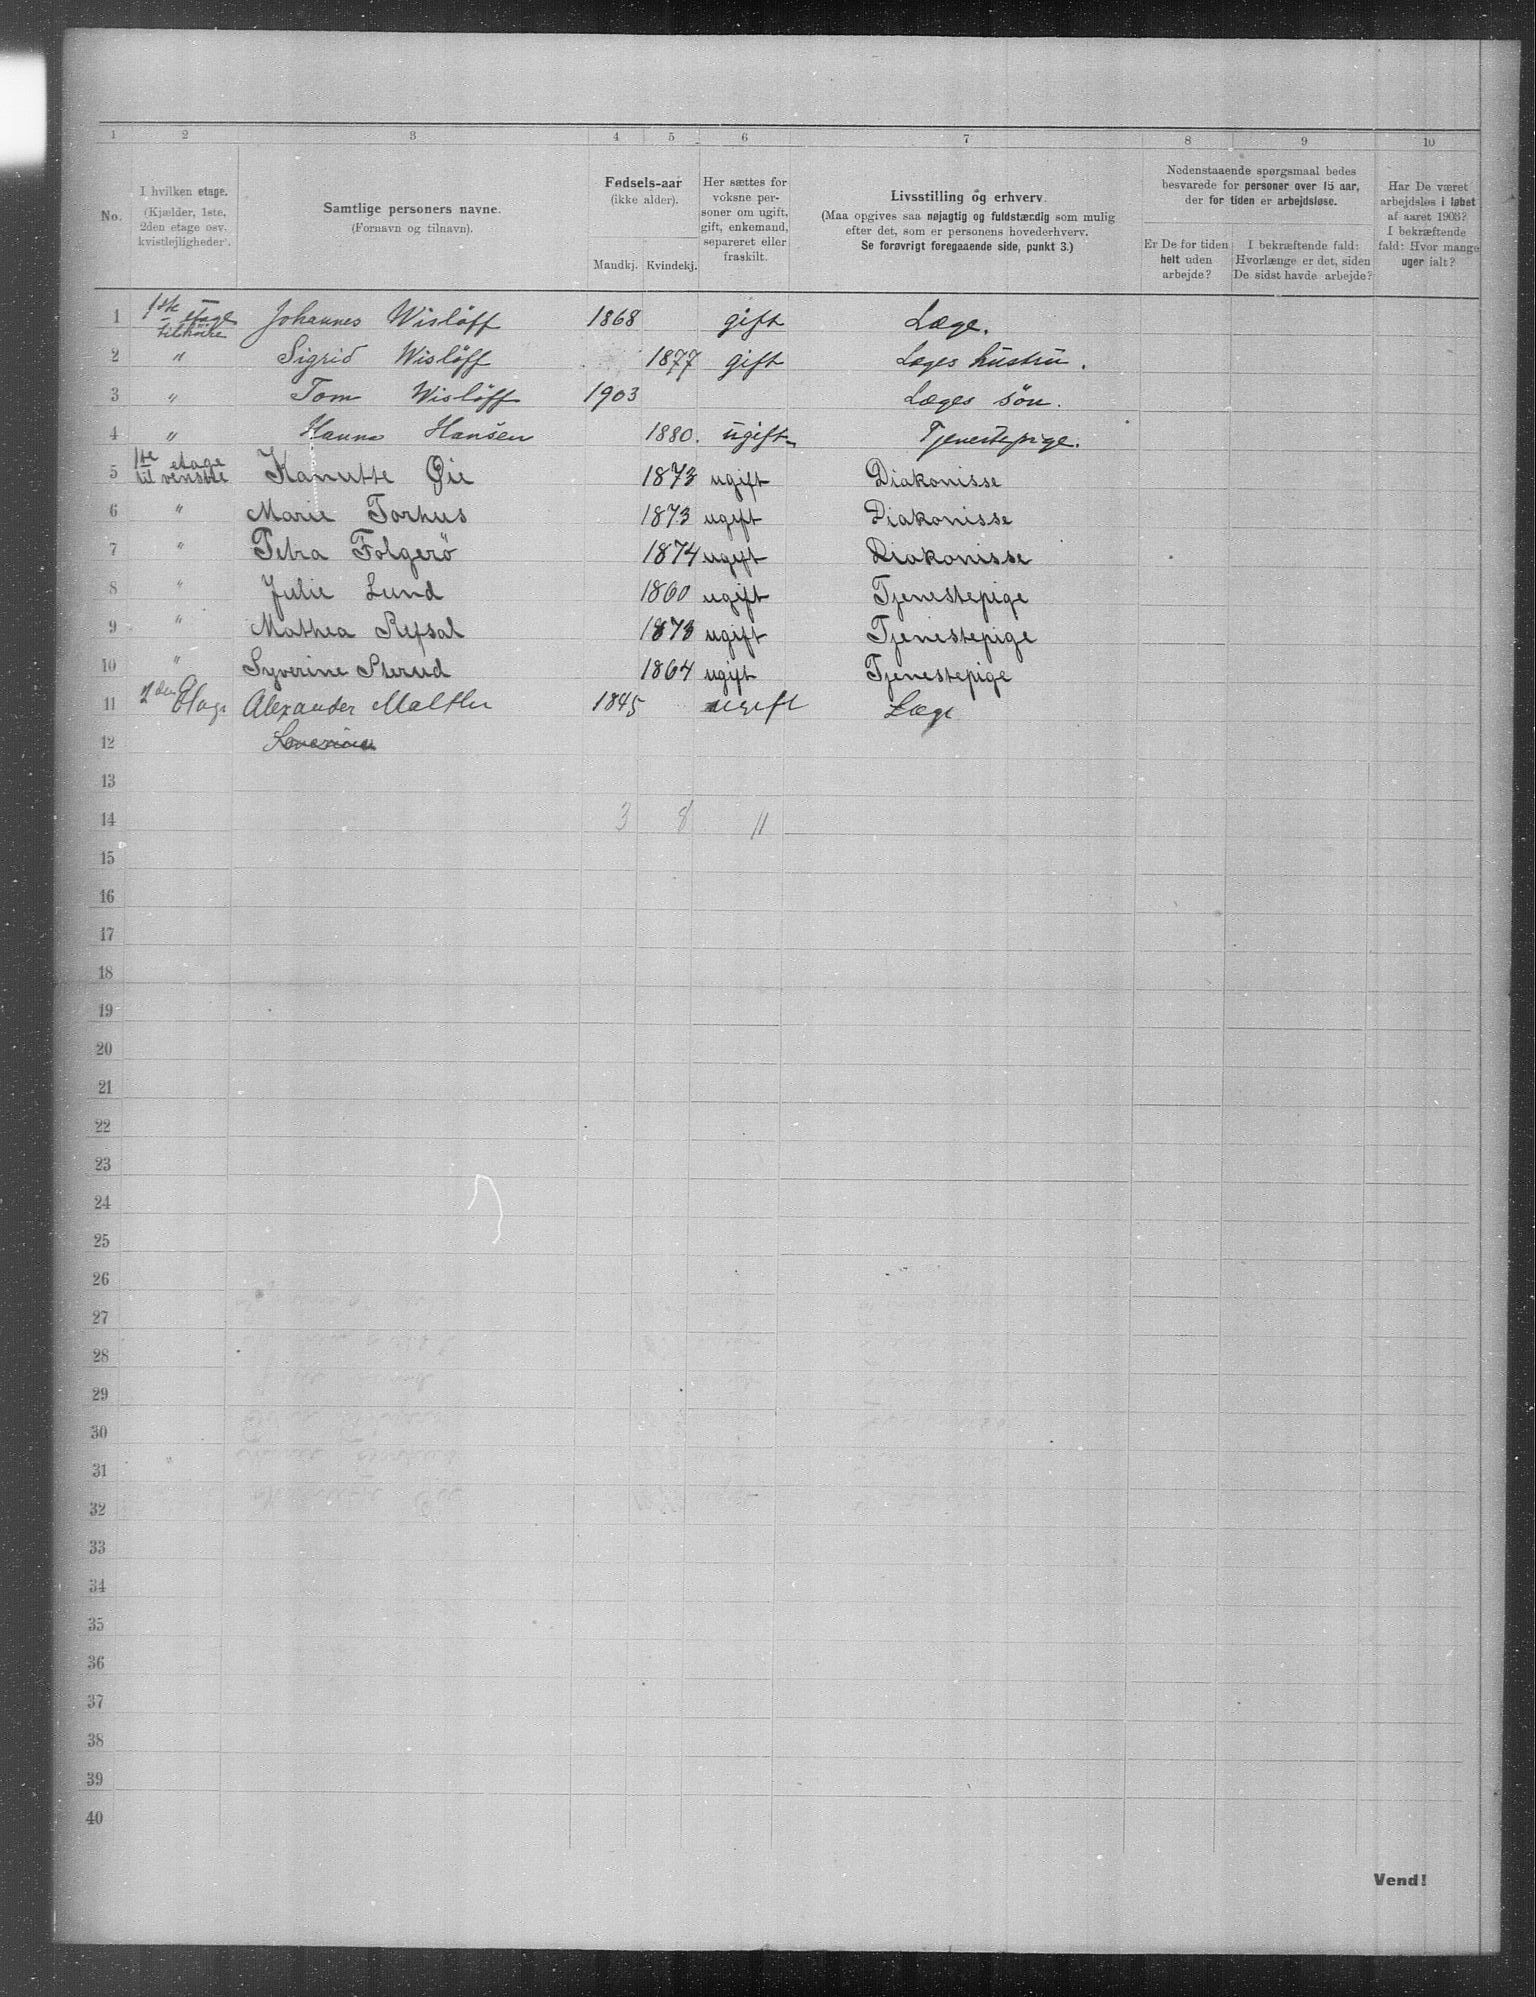 1 2 3 4 5 6 7 8 9 10
No.
I hvilken etage.
(Kjælder, 1ste,
2den etage osv.
kvistlejligheder).
Samtlige personers navne.
(Fornavn og tilnavn).
Fødsels-aar
(ikke alder).
Mandkj. Kvindekj.
Her sættes for
voksne per-
soner om ugift,
gift, enkemand,
separeret eller
fraskilt.
Livsstilling og erhverv.
(Maa opgives saa nøjagtig og fuldstændig som mulig
efter det, som er personens hovederhverv.
Se forøvrigt foregaaende side, punkt 3.)
Nedenstaaende spørgsmaal bedes
besvarede for personer over 15 aar,
der for tiden er arbejdsløse.
Er De for tiden
helt uden
arbejde?
I bekræftende fald:
Hvorlænge er det, siden
De sidst havde arbejde?
Har De været
arbejdsløs i løbet
af aaret 1903?
I bekræftende
fald: Hvor mange
uger ialt?
1 1ste etage tilhöire Johannes Wislöff 1868 gift Læge.
2 " Sigrid Wislöff 1877 gift Læges hustru.
3 " Tom Wislöff 1903 Læges sön.
4 " Hanna Hansen 1880. ugift Tjenestepige.
5 1te etage til venstre Kanutte Øie 1873 ugift Diakonisse
6 " Marie Torhus 1873 ugift Diakonisse
7 " Petra Folgerö 1874 ugift Diakonisse
8 " Julie Lund 1860 ugift Tjenestepige
9 " Mathea Refsal 1873 ugift Tjenestepige
10 " Syverine Sterud 1864 ugift Tjenestepige
11 2den Etage Alexander Malthe 1845 ugift Læge
12
13
14 3 8 11
15
16
17
18
19
20
21
22
23
24
25
26
27
28
29
30
31
32
33
34
35
36
37
38
39
40
Vend!